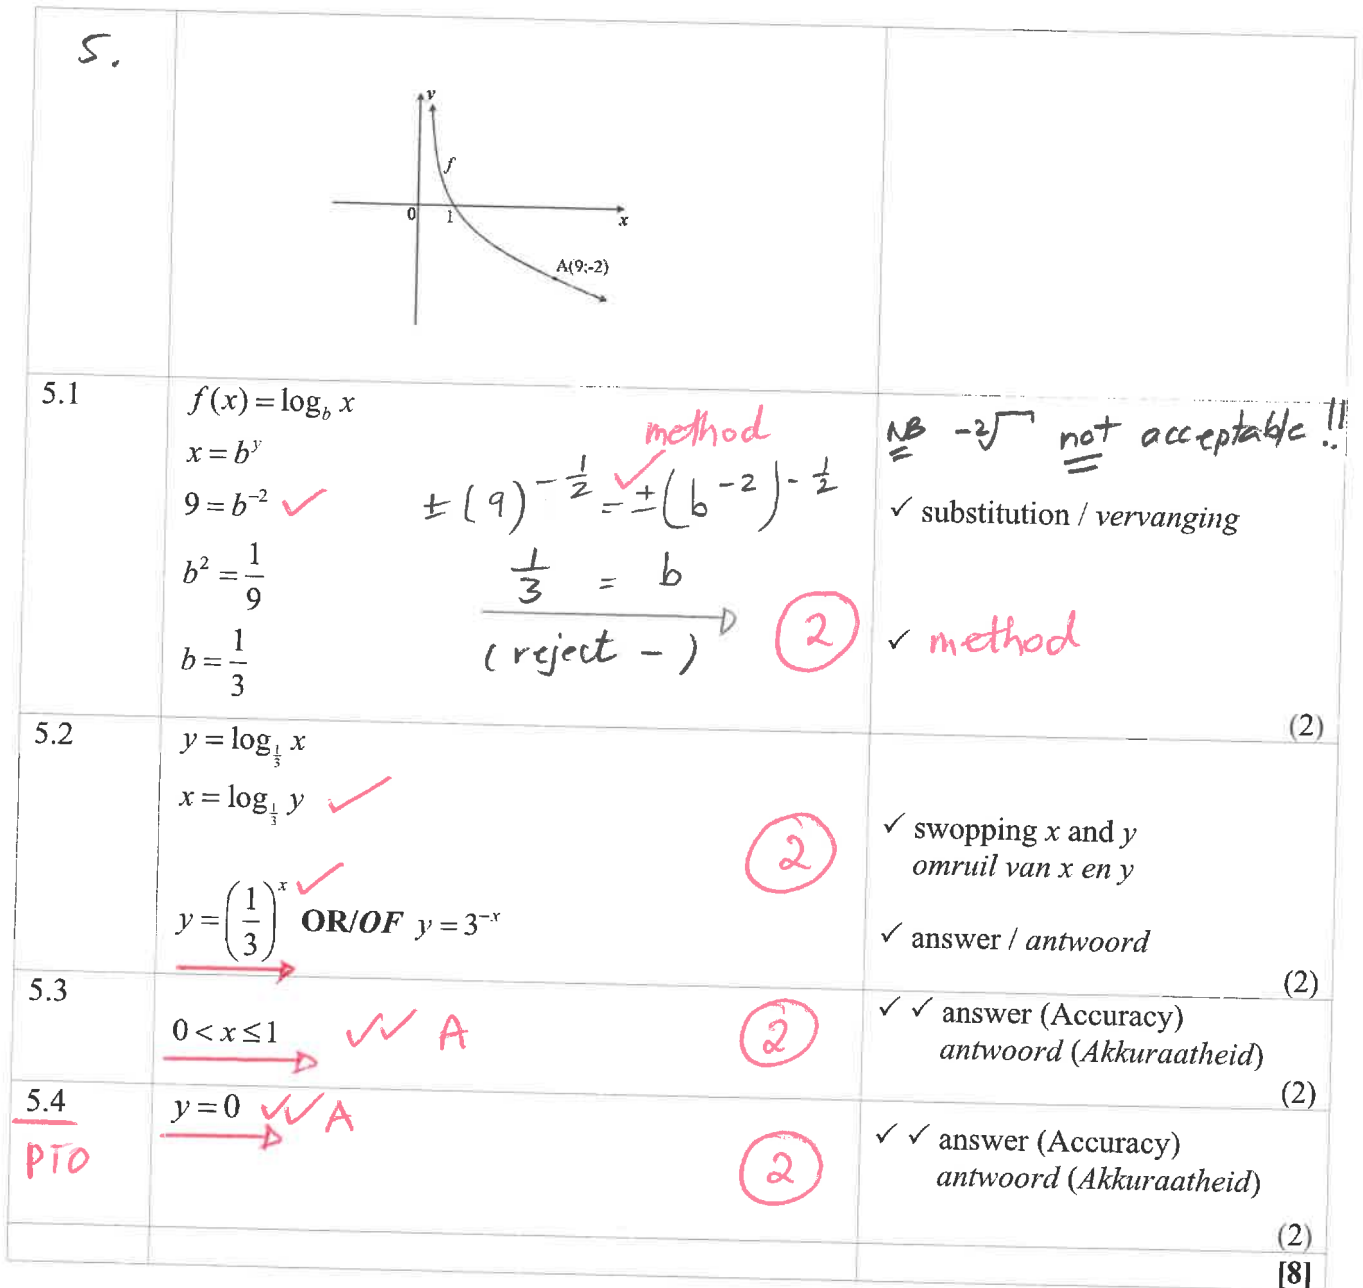 5.
y
f
0 1 x
A(9;-2)
5.1
f(x) = log_b x
x = b^y
9 = b^{-2} ✓
b² = 1/9
b = 1/3
method
± (9)^{-1/2} ✓ = ± (b^{-2})^{-1/2}
1/3 = b
(reject -)
2
NB -2√ not acceptable !!
✓ substitution / vervanging
✓ method
(2)
5.2
y = log_{1/3} x
x = log_{1/3} y ✓
y = (1/3)^x ✓ OR/OF y = 3^{-x}
2
✓ swopping x and y
omruil van x en y
✓ answer / antwoord
(2)
5.3
0 < x ≤ 1 ✓✓ A
2
✓ ✓ answer (Accuracy)
antwoord (Akkuraatheid)
(2)
5.4
PTO
y = 0 ✓✓ A
2
✓ ✓ answer (Accuracy)
antwoord (Akkuraatheid)
(2)
[8]